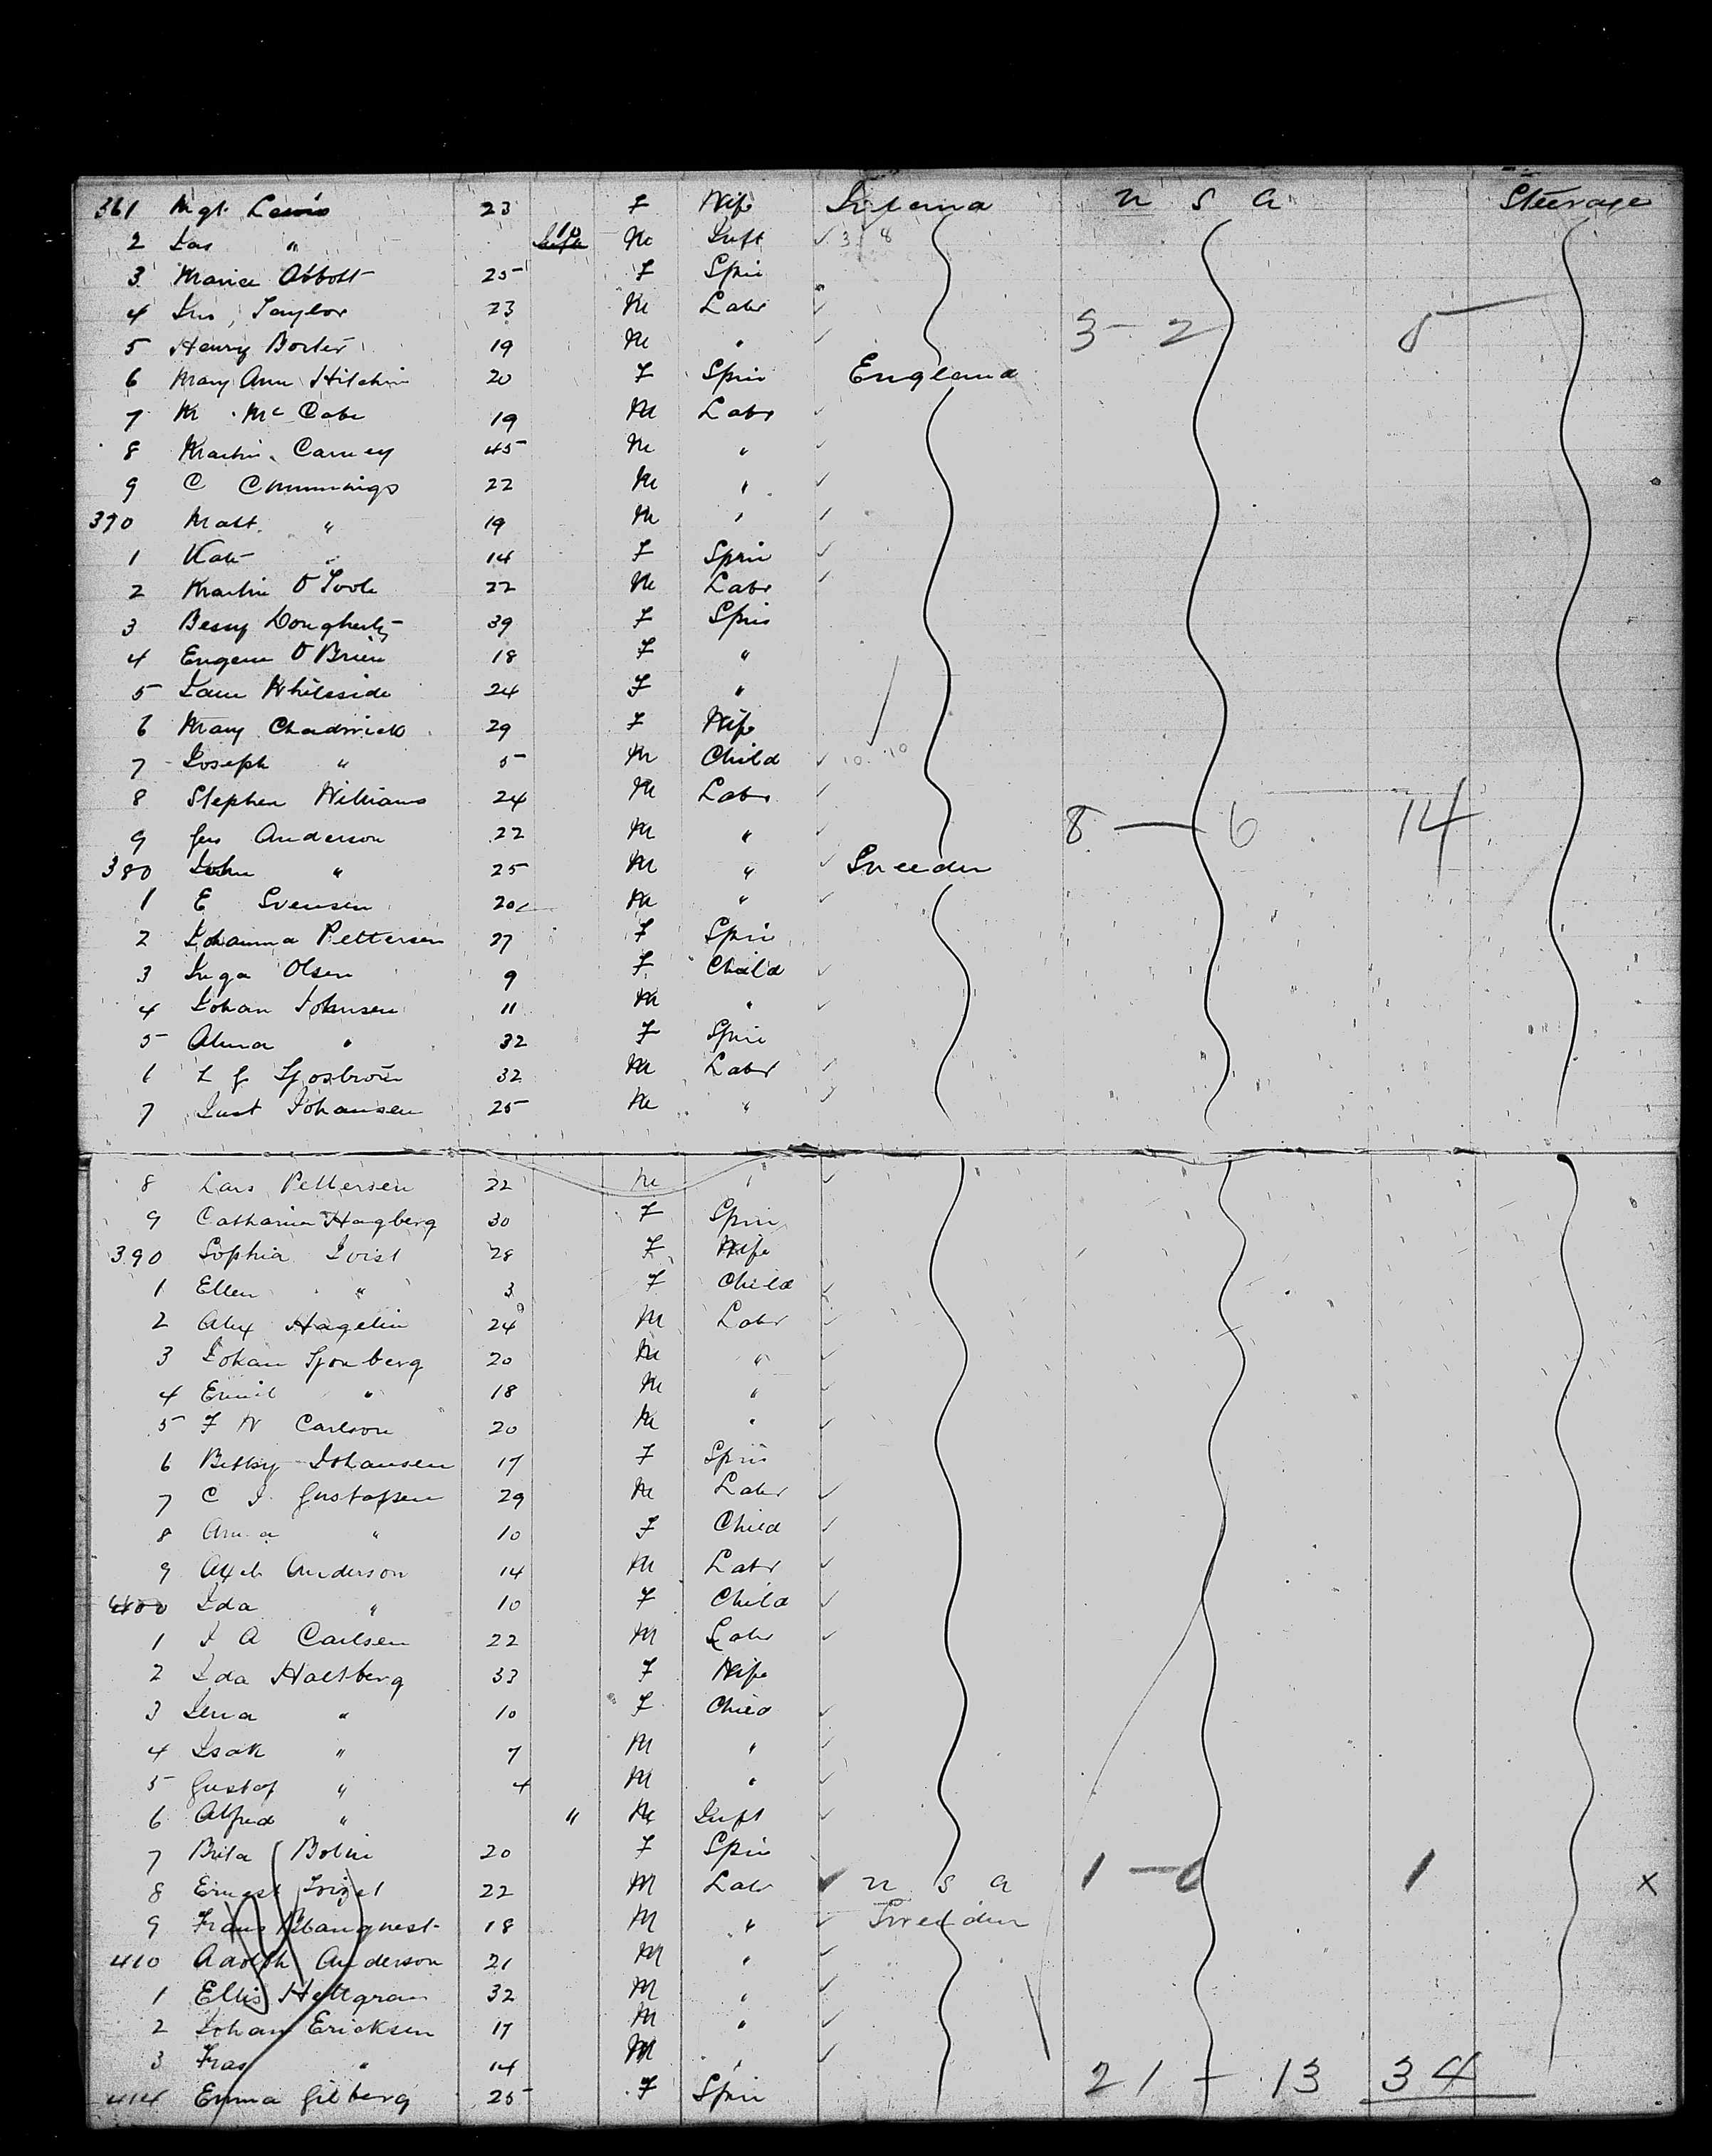 361 Mgt. Lewis 23 F Wife Ireland U S A Steerage
2 Jas " 10 M Inft 3 8
3 Maria Abbott 25 F Spin
4 Taylor 23 M Labr 3 - 2 5
5 Henry 19 M "
6 Mary Ann 20 F Spin England
7 M. McCabe 19 M Labr
8 Martin Carney 45 M "
9 C Cummings 22 M "
370 Matt. " 19 M "
1 Kate " 14 F Spin
2 Martin O'Toole 22 M Labr
3 Bessy Dougherty 39 F Spin
4 Eugene O'Brien 18 F "
5 Jane Whiteside 24 F "
6 Mary Chadwick 29 F Wife
7 Joseph " 5 M Child 10 10
8 Stephen Williams 24 M Labr 8 — 6 14
9 Anderson 22 M "
380 John " 25 M " Sweeden
1 E Svensen 20 M "
2 Johanna Pettersen 27 F Spin
3 Inga Olsen 9 F Child
4 Johan Johnsen 11 M "
5 Alma " 32 F Spin
6 32 M Labr
7 Just Johansen 25 M "
8 Lars Pettersen 22 M "
9 Catharina Hagberg 30 F Spin
390 Sophia 28 F Wife
1 Ellen " 3 F Child
2 Alex Hagelin 24 M Labr
3 Johan Sjonberg 20 M "
4 Emil " 18 M "
5 F W Carlson 20 M "
6 Betsy Johansen 17 F Spin
7 C J Gustafsen 29 M Labr
8 Anna " 10 F Child
9 Axel Anderson 14 M Labr
400 Ida " 10 F Child
1 J A Carlsen 22 M Labr
2 Ida Holtberg 33 F Wife
3 Lena " 10 F Child
4 Isak " 7 M "
5 Gustaf " 4 M "
6 Alfred " " M Inft
7 Brita Bolin 20 F Spin
8 Ernest 22 M Labr U S A 1 — 0 1 X
9 Frans 18 M " Sweeden
410 Adolph Anderson 21 M "
1 Ellis Hettgran 32 M "
2 Johan Ericksen 17 M "
3 Fras " 14 M " 21 - 13 34
414 Emma Gilberg 25 F Spin